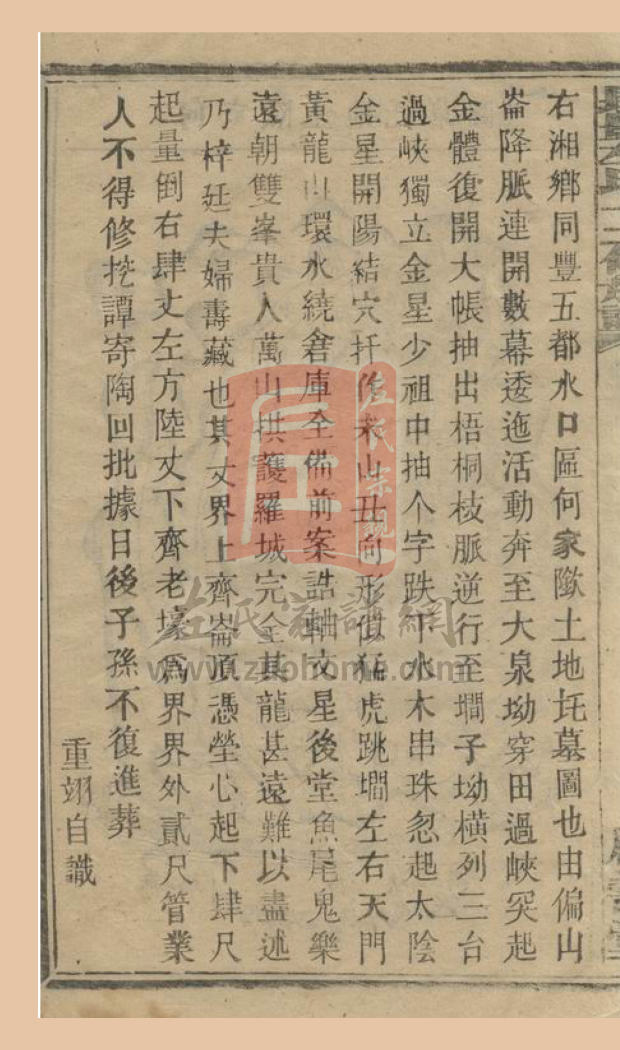 右湘鄉同豐五都水口區何家隞土地圫墓圖也由偏山
崙降脈連開數幕逶迤活動奔至大泉坳穿田過峽突起
金體復開大帳抽出梧桐枝脈逆行至墹子坳橫列三台
過峽獨立金星少祖中抽个字跌下水木串珠忽起太陰
金星開陽結穴扦作未山丑向形似猛虎跳墹左右天門
黃龍山環水繞倉庫全備前案誥軸文星後堂魚尾鬼樂
遠朝雙峯貴人萬山拱護羅城完全其龍甚遠難以盡述
乃梓廷夫婦壽藏也其丈界上齊崙頂憑塋心起下肆尺
起量倒右肆丈左方陸丈下齊老壕爲界界外貳尺管業
人不得修挖譚寄陶回批據日後子孫不復進葬
重翊自識
左氏宗親
左氏家譜網
www.zuohome.com